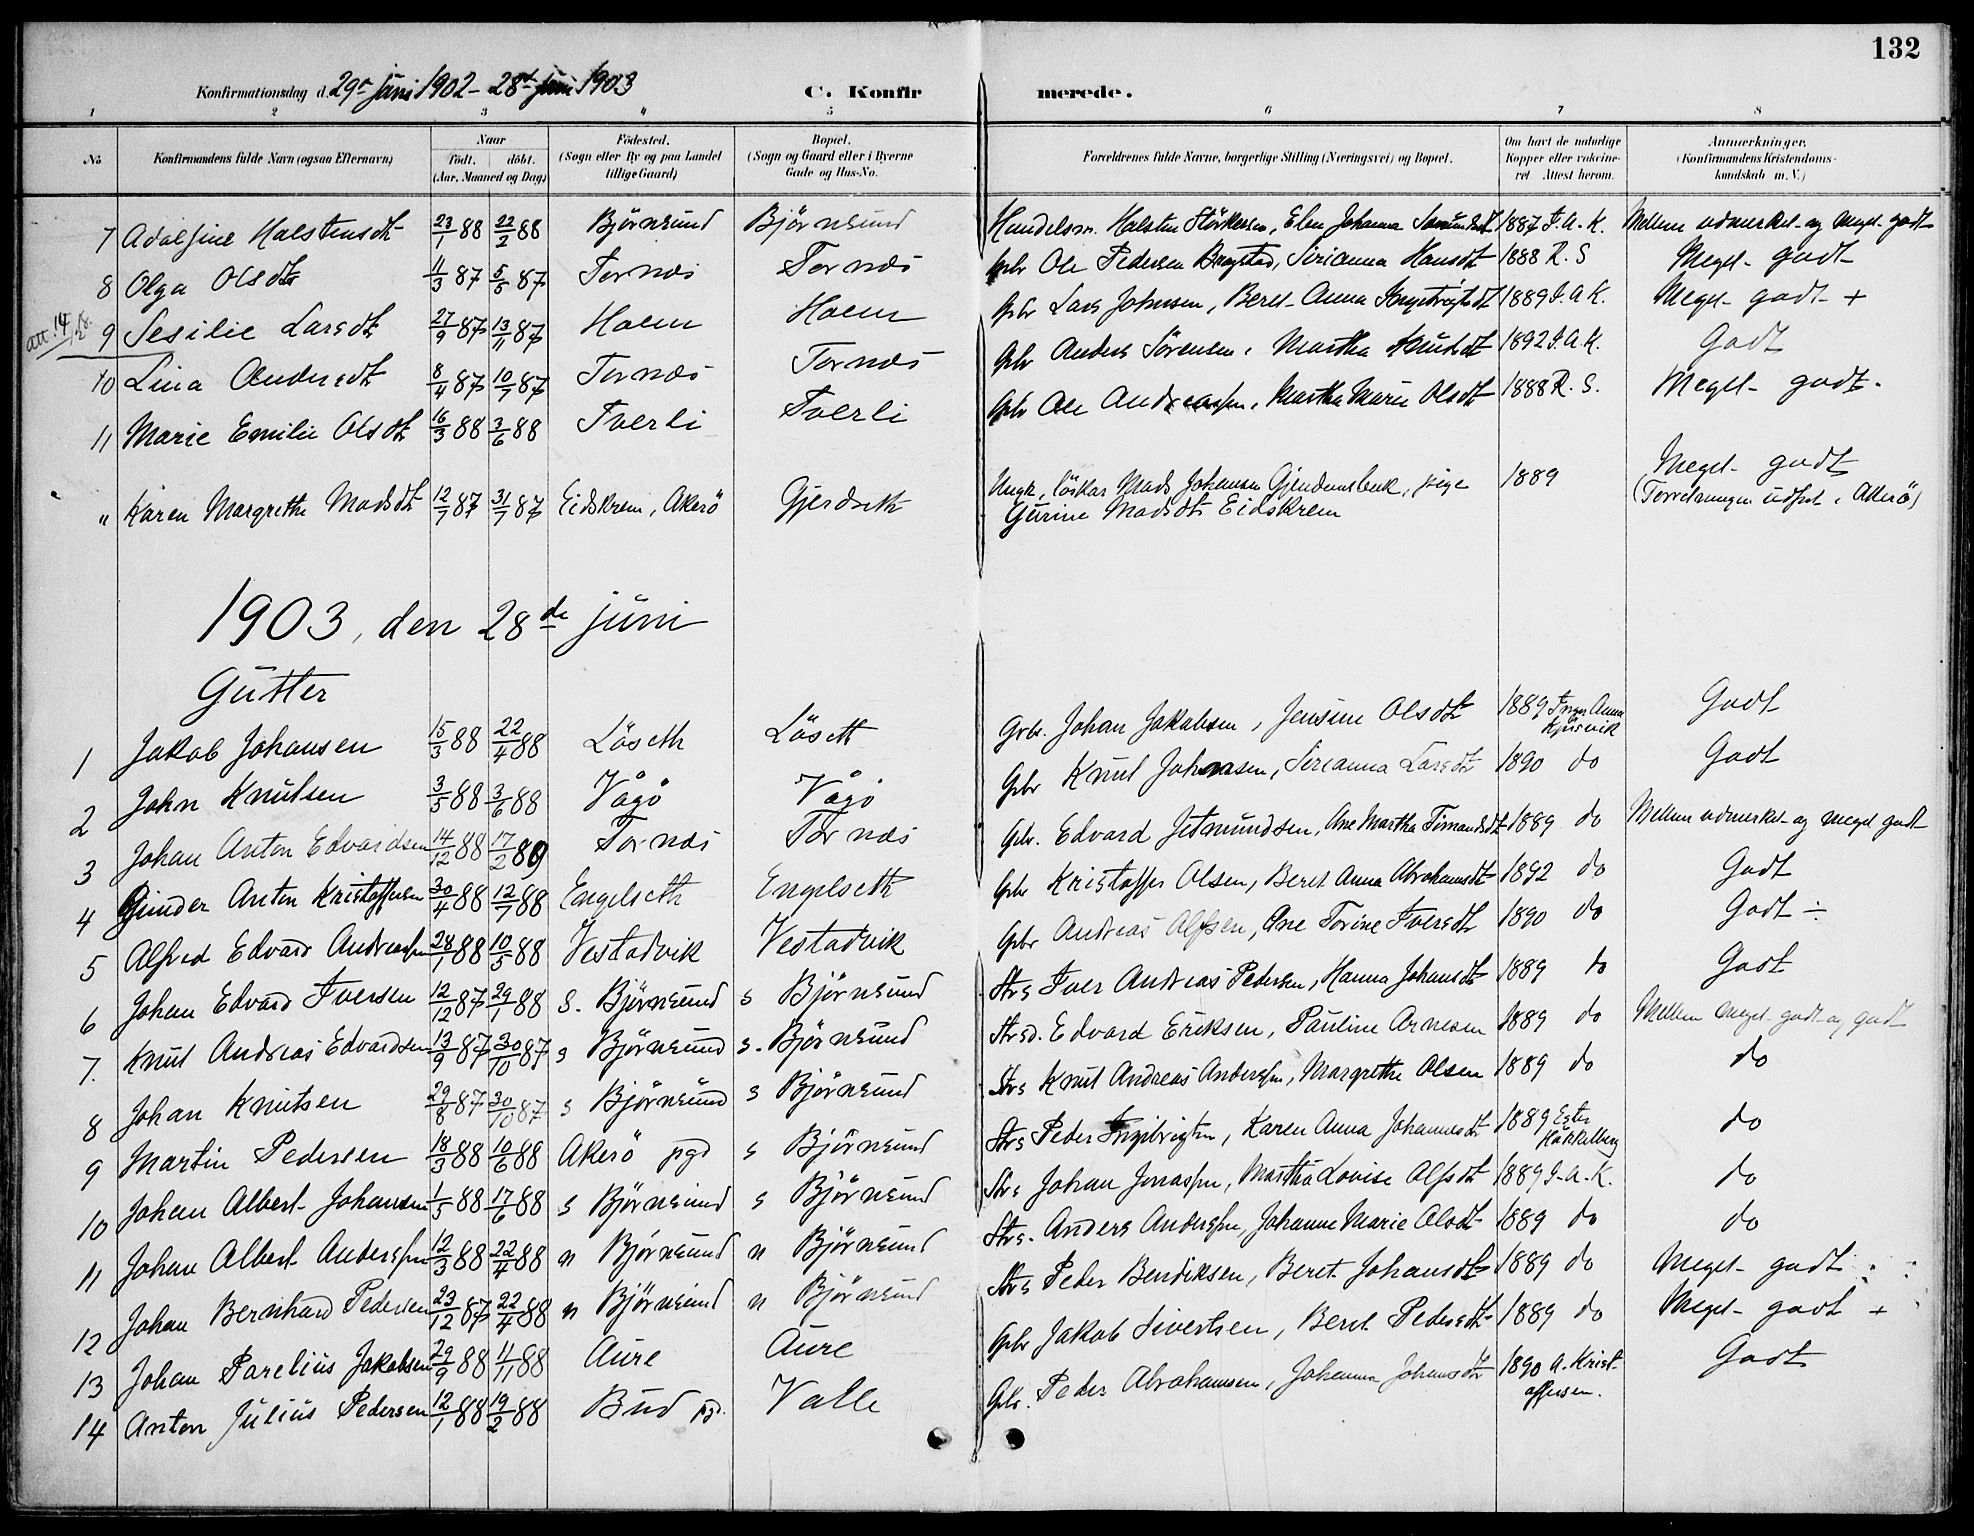 132
Konfirmationsdag d. 29de juni 1902 - 28d juni 1903 C. Konfirmerede.
1 2 3 4 5 6 7 8
No Konfirmandens fulde Navn (ogsaa Efternavn) Naar födt. döbt. (Aar, Maaned og Dag) Födested. (Sogn eller By og paa Landet tillige Gaard) Bopæl. (Sogn og Gaard eller i Byerne Gade og Hus-No. Forældrenes fulde Navne, borgerlige Stilling (Næringsvei) og Bopæl. Om havt de naturlige Kopper eller vaccineret. Attest herom. Anmærkninger. (Konfirmandens Kristendomskundskab m. V.)
7 Adolfine Halstensdt 23/1 88 22/2 88 Björnsund Björnsund Handelsm. Halsten Störkersen, Elen Johanna 1887 I. A. K. Mellem udmerket og meget godt
8 Olga Olsdtr 11/3 87 5/5 87 Tornæs Tornæs Gbr Ole Pedersen Bragstad, Sirianna Hansdt 1888 R. S Meget godt
att. 14/ 9 Sesilie Larsdt 27/9 87 13/11 87 Hoem Hoem Gbr Lars Johnsen, Beret Anna 1889 I. A. K. Meget godt +
10 Lina Andersdt 8/4 87 10/7 87 Tornæs Tornæs Gbr Anders Sörensen, Martha Knudsdt 1892 I. A. K. Godt
11 Marie Emilie Olsdt 16/3 88 3/6 88 Tverli Tverli Gbr Ole Andreassen, Martha Marie Olsdt 1888 R. S. Meget godt.
" Karen Margrethe Madsdt 12/7 87 31/7 87 Eidskrem, Akerö Gjerdseth Ungk. löskar Mads Johansen Gjendemsbenk, pige 1889 Meget godt
Gurine Madsdt Eidskrem (Torretningen udført i Akerö)
1903, den 28de juni
Gutter
1 Jakob Johansen 15/3 88 22/4 88 Löseth Löseth Gbr. Johan Jakobsen, Jensine Olsdt 1889 Inger Anna Kjörsvik Godt
2 John Knutsen 3/5 88 3/6 88 Vågö Vågö Gbr Knut Johnsen, Sirianna Larsdt 1890 do Godt
3 Johan Anton Edvardsen 14/12 88 17/2 89 Tornæs Tornæs Gbr. Edvard Jetmundsen, Ane Martha 1889 do Mellem udmerket og meget godt
4 Gunder Anton Kristoffersen 30/4 88 12/7 88 Engelseth Engelseth Gbr Kristoffer Olsen, Beret Anna Abrahamsdt 1892 do Godt
5 Alfred Edvard Andreassen 28/1 88 10/5 88 Vestadvik Vestadvik Gbr Andreas Alfsen, Ane Torine Iversdt 1890 do Godt ÷
6 Johan Edvard Iversen 12/12 87 29/1 88 S. Björnsund s Björnsund Strs Iver Andreas Pedersen, Hanna Johansdt 1889 do Godt
7. Knut Andreas Edvardsen 13/9 87 30/10 87 s Björnsund s. Björnsund Strsd. Edvard Eriksen, Pauline Arnesen 1889 do Mellem meget godt og godt
8 Johan Knutsen 29/8 87 30/10 87 s Björnsund s Björnsund Strs Knut Andreas Anderssen, Margrethe Olsen 1889 do do
9 Martin Pedersen 18/3 88 10/6 88 Akerö pgd s Björnsund Strs Peder Ingebrigtsen, Karen Anna Johannesdt 1889 Ester do
10 Johan Albert Johansen 1/5 88 17/6 88 s Björnsund s Björnsund Strs Johan Jonassen, Martha Lovise Alfsdt 1889 I. A. K. do
11 Johan Albert Anderssen 12/3 88 22/4 88 n Björnsund n Björnsund Strs. Anders Anderssen, Johanne Marie Olsdt 1889 do do
12 Johan Bernhard Pedersen 23/12 87 22/4 88 n Björnsund n Björnsund Strs Peder Bendiksen, Beret Johansdt 1889 do Meget godt
13 Johan Parelius Jakobsen 29/9 88 4/11 88 Aure Aure Gbr Jakob Sivertsen, Beret Pedersdt 1889 do Meget godt +
14 Anton Julius Pedersen 12/1 88 19/2 88 Bud pgd. Valle Gbr. Peder Abrahamsen, Johanna Johansdt 1890 A. Kristoffersen. Godt